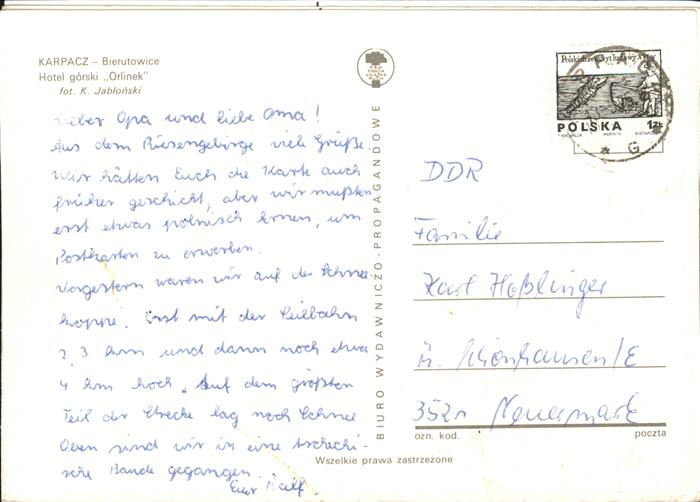 KARPACZ – Bierutowice
Hotel górski „Orlinek"
fot. K. Jabłoński
Lieber Opa und liebe Oma!
Aus dem Riesengebirge viele Grüße.
Wir hätten Euch die Karte auch
früher geschickt, aber wir mußten
erst etwas polnisch lernen, um
Postkarten zu erwerben.
Vorgestern waren wir auf der Schnee-
koppe. Erst mit der Seilbahn
2,3 km und dann noch etwa
4 km hoch. Auf dem größten
Teil der Strecke lag noch Schnee
Oben sind wir in eine tschechi-
sche Baude gegangen
Euer Ralf.
BIURO WYDAWNICZO-PROPAGANDOWE
POLSKA 1zł
DDR
Familie
Karl Häßlinger
Schönhausen/E
3521 Neuermark
ozn. kod. poczta
Wszelkie prawa zastrzeżone